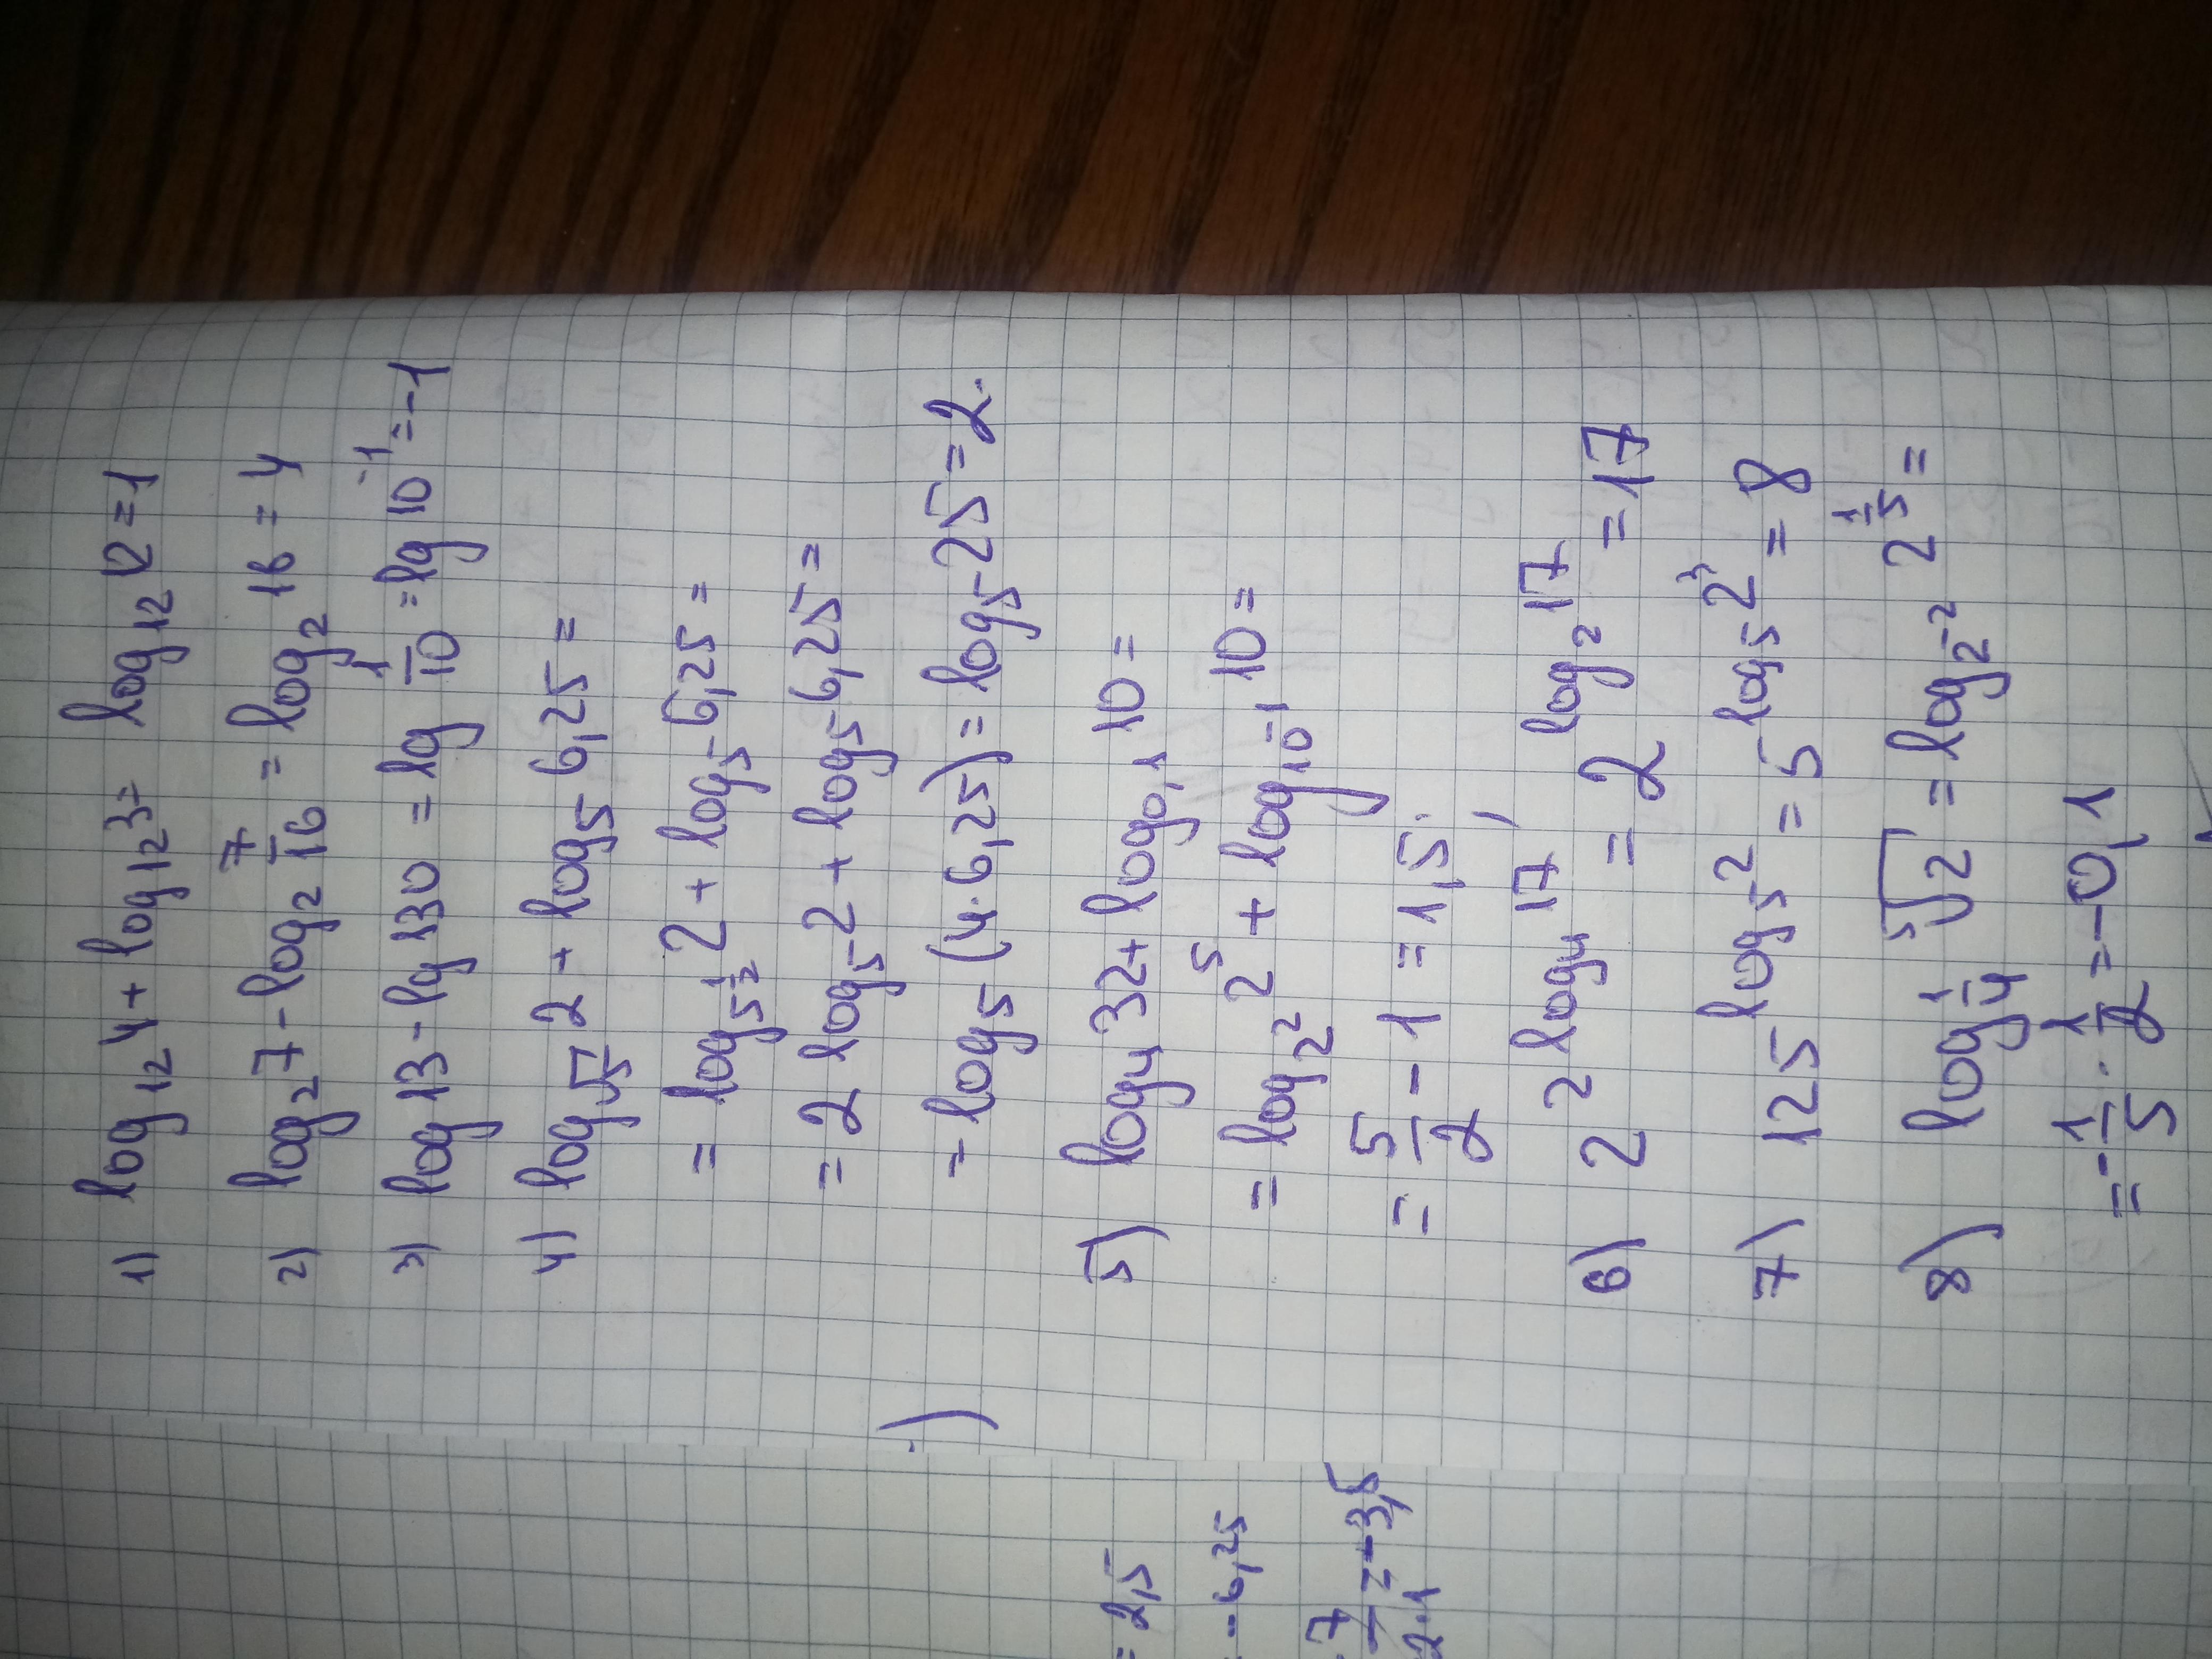 1) log₁₂4 + log₁₂3 = log₁₂12 = 1
2) log₂7 - log₂ 7/16 = log₂16 = 4
3) log13 - lg130 = lg 1/10 = lg10⁻¹ = -1
4) log_√5 2 + log₅6,25 =
= log_5^(1/2) 2 + log₅6,25 =
= 2 log₅2 + log₅6,25 =
= log₅(4·6,25) = log₅25 = 2.
5) log₄32 + log₀,₁10 =
= log_2² 2⁵ + log_10⁻¹ 10 =
= 5/2 - 1 = 1,5.
6) 2^(2log₄17) = 2^(log₂17) = 17
7) 125^(log₅2) = 5^(log₅2³) = 8
8) log_1/4 ⁵√2 = log_2⁻² 2^(1/5) =
= -1/5 · 1/2 = -0,1
= 2,5
- 6,25
7/2·1 = -3,5